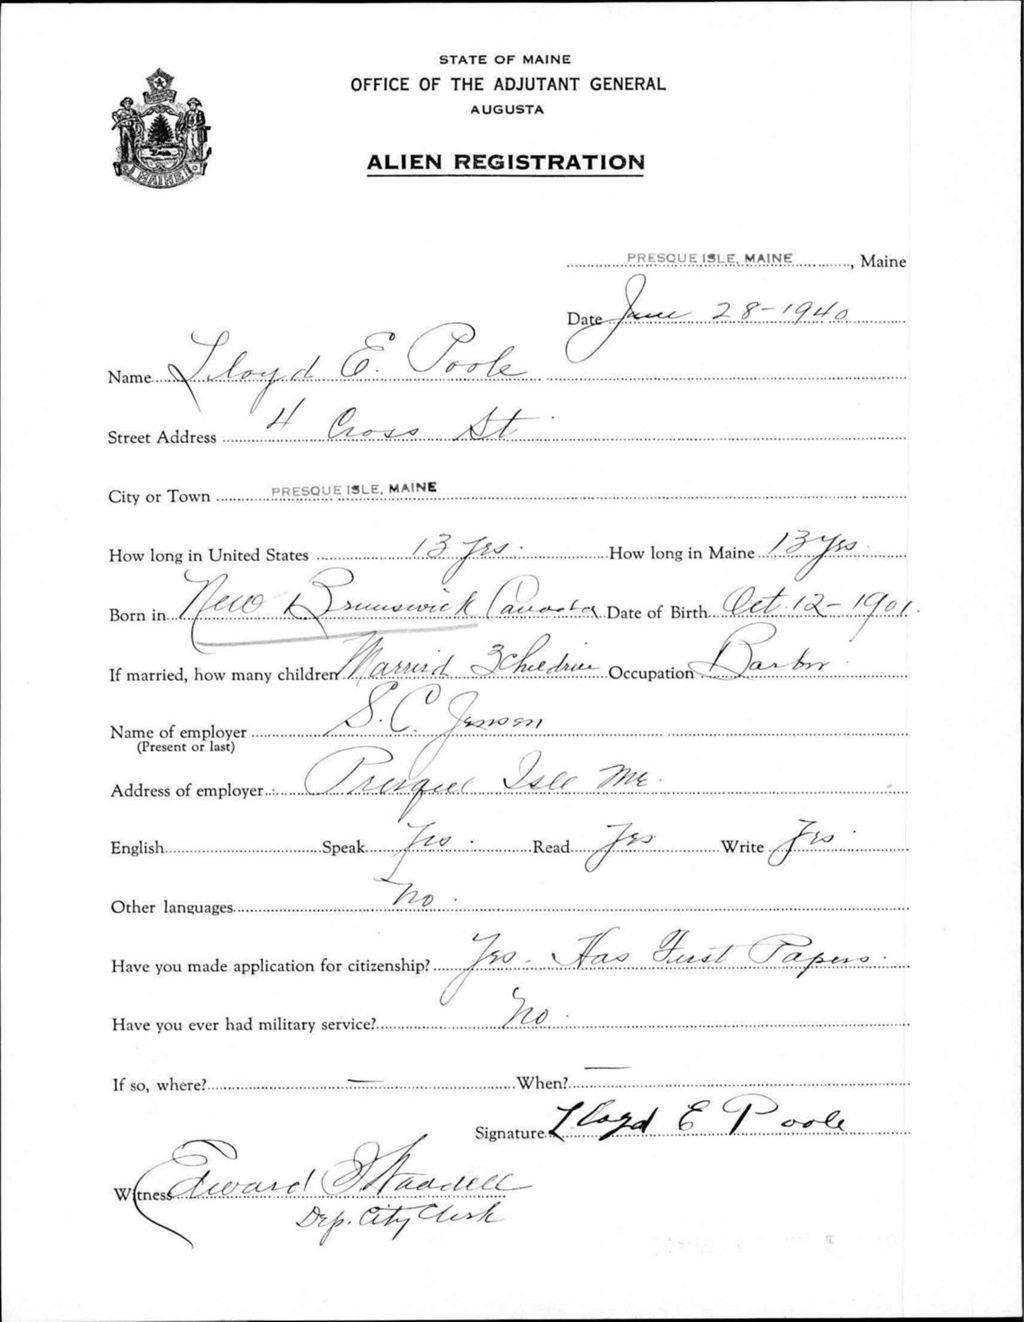 STATE OF MAINE
OFFICE OF THE ADJUTANT GENERAL
AUGUSTA
ALIEN REGISTRATION
MAINE
PRESQUE ISLE, MAINE, Maine
Date June 28-1940
Name Lloyd E. Poole
Street Address 4 Cross St
City or Town PRESQUE ISLE, MAINE
How long in United States 13 Yrs. How long in Maine 13 Yrs
Born in New Brunswick Canada Date of Birth Oct. 12-1901.
If married, how many children Married 3 Children Occupation Barber
Name of employer S. C. Jensen
(Present or last)
Address of employer Presque Isle Me.
English Speak Yes. Read Yes Write Yes.
Other languages No.
Have you made application for citizenship? Yes. Has First Papers.
Have you ever had military service? No.
If so, where? — When? —
Signature Lloyd E Poole
Witness Edward Waddell
Dep. City Clerk